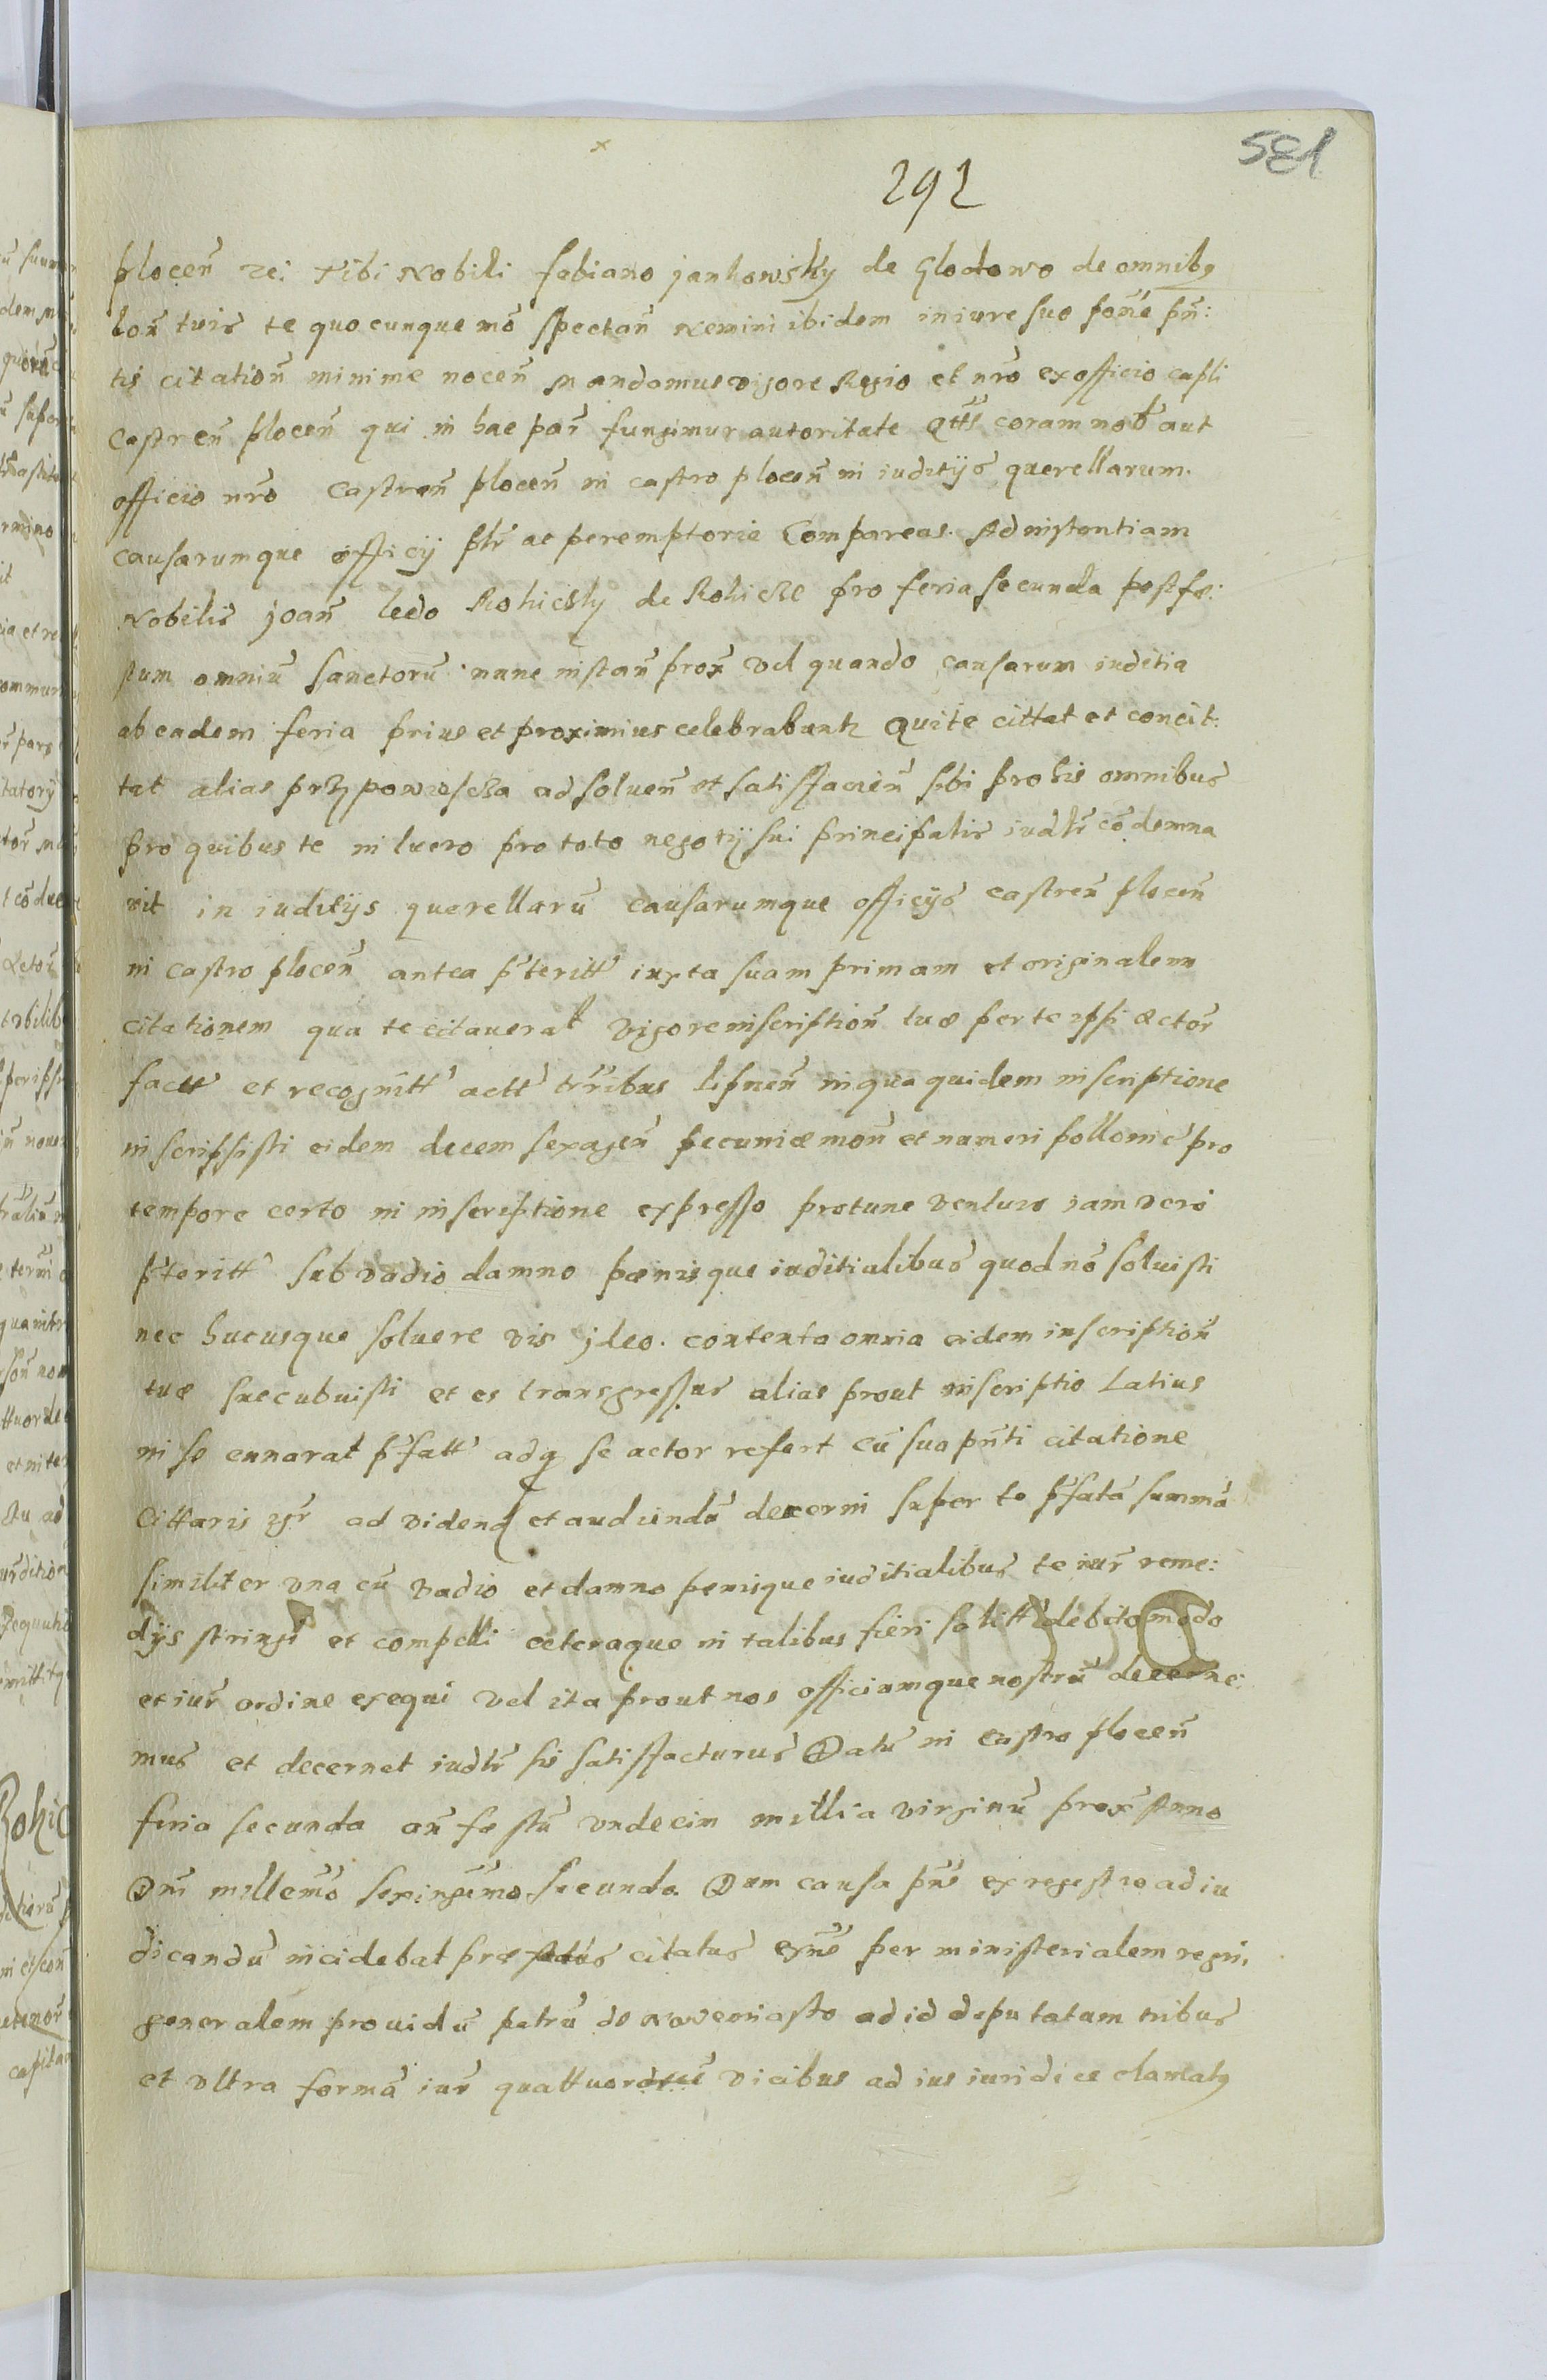 581
292
plocen̄ rei Tibi Nobili Fabiano Jankowsky de Glodowo de omnib9
bon̄ tuis te quocunque mō spectan̄ Nemini ibidem in iure suo sone pn̄:
tis citation̄ minime nocen̄ Mandamus vigore Regio et nrō ex officio capli
Castren̄ plocen̄ qui in hac par̄ fungimur autoritate qtt̄s coram nob aut
officio nrō Castren̄ plocen̄ in castro plocen̄ in iuditijs querellarum.
causarumque officij plr̄ ac peremptorie Compareas. Ad instantiam
Nobilis Joan̄ Ledo Rohiczky de Rohicze pro feria secunda post fe:
stum omniū Sanctorū nunc instan̄ prox̄ vel quando causarum iuditia
ab eadem feria prius et proximius celebrabunt Qui te cittat et concit:
tat alias przypowiescza ad soluen̄ et satisfacien̄ sibi pro his omnibus
pro quibus te in lucro pro toto negotij sui principalis iudlr̄ cōdemna
vit in iuditijs querellarū causarumque officijs castren̄ plocen̄
in castro plocen̄ antea p̄teritt iuxta suam primam et originalem
citationem qua te citauerat vigore inscription̄ tuæ per te ipsi actor̄
factt et recognitt actt trr̄ibus lipnen̄ in qua quidem inscriptione
inscripsisti eidem decem sexagen̄ pecuniæ mon̄ et numeri pollonic̄ pro
tempore certo in inscriptione expresso protunc venturo iam vero
p̄teritt sub vadio damno pœnisque iuditialibus quod nō soluisti
nec hucusque soluere vis ideo. contenta omnia eidem inscription̄
tuæ succubuisti et es transgressus alias prout inscriptio Latius
in se ennarat p̄fatt adq se actor refert cū sua pn̄ti citatione
Cittaris igr̄ ad videnđ et audiendū decerni super te p̄fatā summā
similiter vna cū vadio et damno penisque iuditialibus te iur̄ reme:
dijs stringi et compelli ceteraque in talibus fieri solitt debito modo
et iur̄ ordine exequi vel ita prout nos officiumque nostrū decerne:
mus et decernet iudlr̄ sis satisfacturus Datū in castro plocen̄
feria secunda an̄ festū vndecim millia virginū prox̄ Anno
Dn̄i millemō sexingēmo secundo. Dum causa pn̄s ex regestro ad iu
dicandū incidebat præfatus citatus exn̄c per ministerialem regni
generalem prouidū petrū de ad id deputatum tribus
et vltra formā iur̄ quattuordecī vicibus ad ius iuridice clamat9